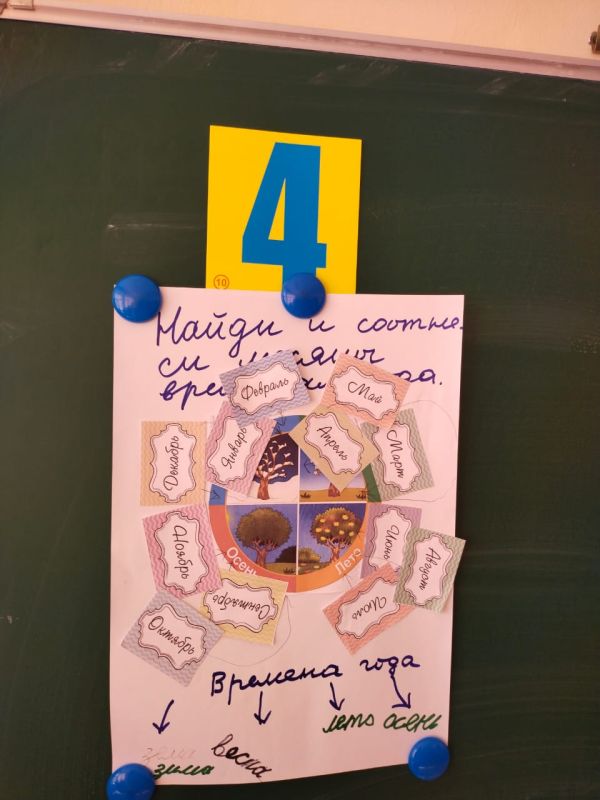 4
10
Найди и соотне-
си месяцы
Февраль
Май
Январь
Апрель
Март
Декабрь
Ноябрь
Сентябрь
Октябрь
Осень
Лето
Июнь
Август
Июль
Времена года
лето осень
зима весна
зима